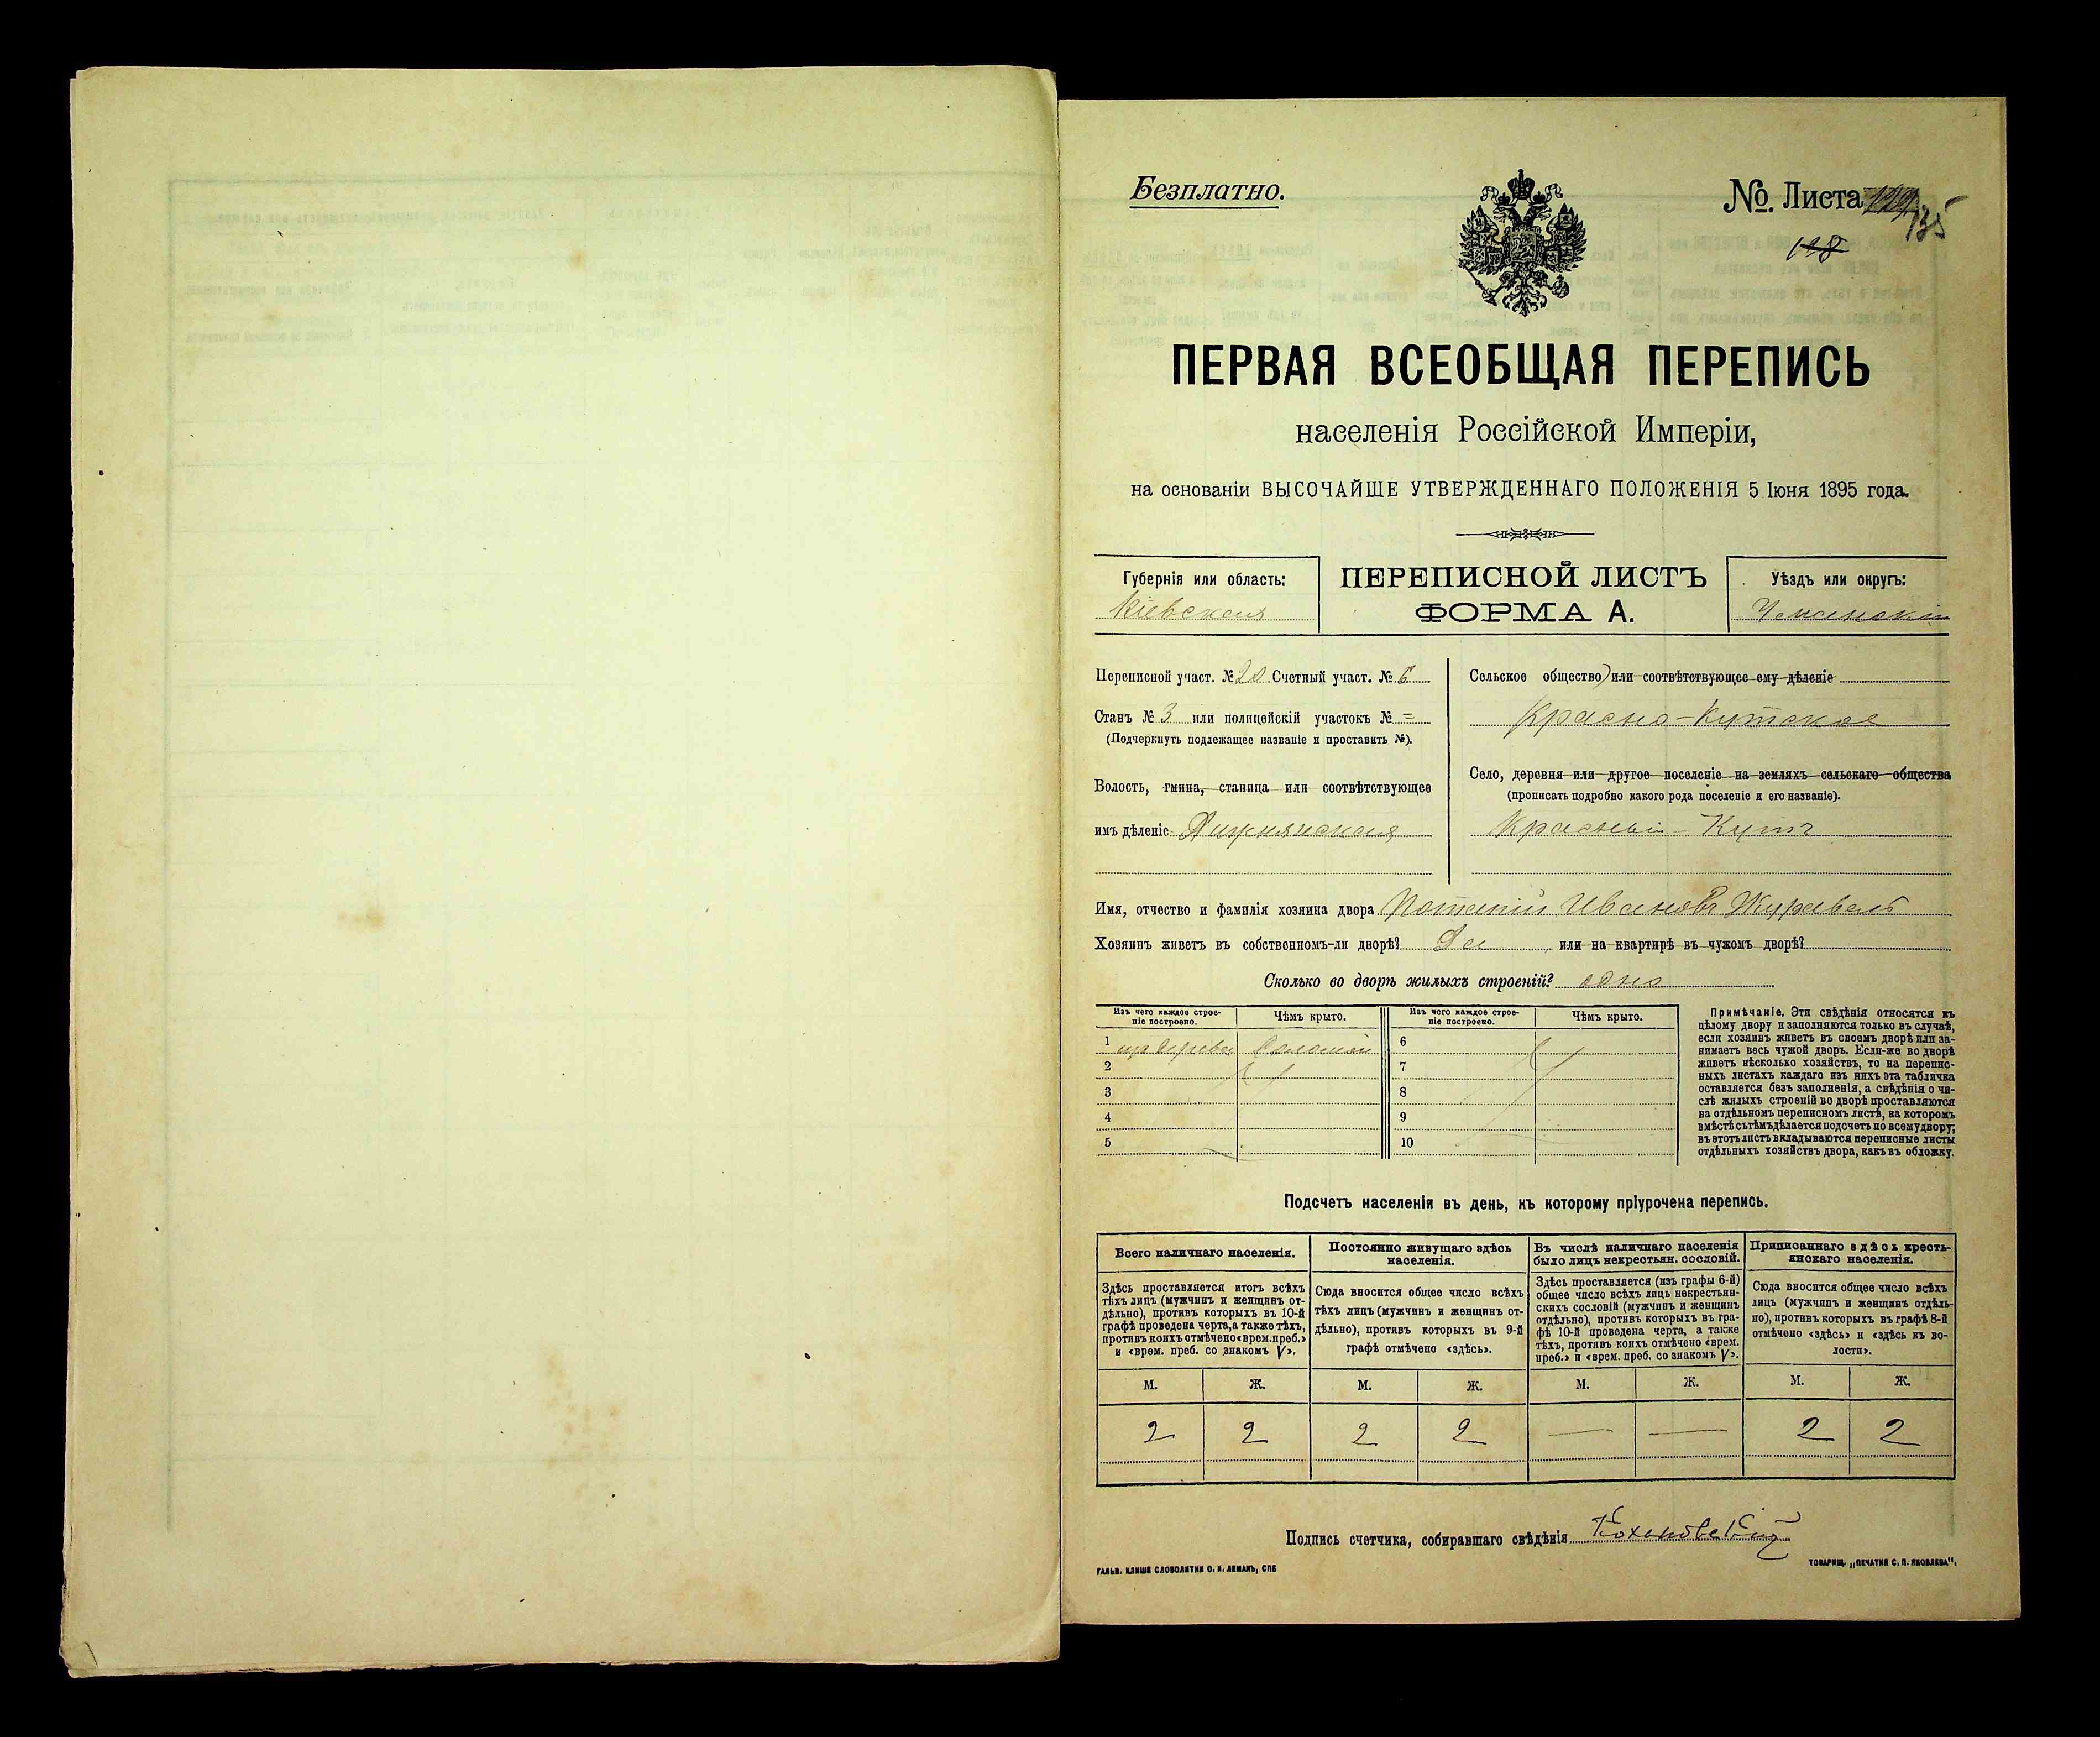 Безплатно.
№. Листа 135
128
ПЕРВАЯ ВСЕОБЩАЯ ПЕРЕПИСЬ
населенія Россійской Имперіи,
на основаніи ВЫСОЧАЙШЕ УТВЕРЖДЕННАГО ПОЛОЖЕНІЯ 5 Іюня 1895 года.
Губернія или область:
Кіевская
ПЕРЕПИСНОЙ ЛИСТЪ
ФОРМА А.
Уѣздъ или округъ:
Уманскій
Переписной участ. № 20 Счетный участ. № 6
Станъ № 3 или полицейскій участокъ № =
(Подчеркнуть подлежащее названіе и проставить №).
Волость, гмина, станица или соотвѣтствующее
имъ дѣленіе
Сельское общество) или соотвѣтствующее ему дѣленіе
Красно-Кутское
Село, деревня или другое поселеніе на земляхъ сельскаго общества
(прописать подробно какого рода поселеніе и его названіе).
Красный-Кутъ
Имя, отчество и фамилія хозяина двора Потапій Ивановъ Журавель
Хозяинъ живетъ въ собственномъ-ли дворѣ? Да или на квартирѣ въ чужомъ дворѣ?
Сколько во дворѣ жилыхъ строеній? одно
Изъ чего каждое строе-
ніе построено.
Чѣмъ крыто.
Изъ чего каждое строе-
ніе построено.
Чѣмъ крыто.
1 изъ дерева Соломой 6
2 7
3 8
4 9
5 10
Примѣчаніе. Эти свѣдѣнія относятся къ
цѣлому двору и заполняются только въ случаѣ,
если хозяинъ живетъ въ своемъ дворѣ или за-
нимаетъ весь чужой дворъ. Если-же во дворѣ
живетъ нѣсколько хозяйствъ, то на перепис-
ныхъ листахъ каждаго изъ нихъ эта табличка
оставляется безъ заполненія, а свѣдѣнія о чи-
слѣ жилыхъ строеній во дворѣ проставляются
на отдѣльномъ переписномъ листѣ, на которомъ
вмѣстѣ съ тѣмъ дѣлается подсчетъ по всему двору;
въ этотъ листъ вкладываются переписные листы
отдѣльныхъ хозяйствъ двора, какъ въ обложку.
Подсчетъ населенія въ день, къ которому пріурочена перепись.
Всего наличнаго населенія.
Здѣсь проставляется итогъ всѣхъ
тѣхъ лицъ (мужчинъ и женщинъ от-
дѣльно), противъ которыхъ въ 10-й
графѣ проведена черта, а также тѣхъ,
противъ коихъ отмѣчено «врем. преб.»
и «врем. преб. со знакомъ V».
Постоянно живущаго здѣсь
населенія.
Сюда вносится общее число всѣхъ
тѣхъ лицъ (мужчинъ и женщинъ от-
дѣльно), противъ которыхъ въ 9-й
графѣ отмѣчено «здѣсь».
Въ числѣ наличнаго населенія
было лицъ некрестьян. сословій.
Здѣсь проставляется (изъ графы 6-й)
общее число всѣхъ лицъ некрестьян-
скихъ сословій (мужчинъ и женщинъ
отдѣльно), противъ которыхъ въ гра-
фѣ 10-й проведена черта, а также
тѣхъ, противъ коихъ отмѣчено «врем.
преб.» и «врем. преб. со знакомъ V».
Приписаннаго здѣсь кресть-
янскаго населенія.
Сюда вносится общее число всѣхъ
лицъ (мужчинъ и женщинъ отдѣль-
но), противъ которыхъ въ графѣ 8-й
отмѣчено «здѣсь» и «здѣсь къ во-
лости».
М. Ж. М. Ж. М. Ж. М. Ж.
2 2 2 2 — — 2 2
Подпись счетчика, собиравшаго свѣдѣнія Кохановскій
ГАЛЬВ. КЛИШЕ СЛОВОЛИТНИ О. И. ЛЕМАНЪ, СПБ
ТОВАРИЩ. „ПЕЧАТНЯ С. П. ЯКОВЛЕВА".